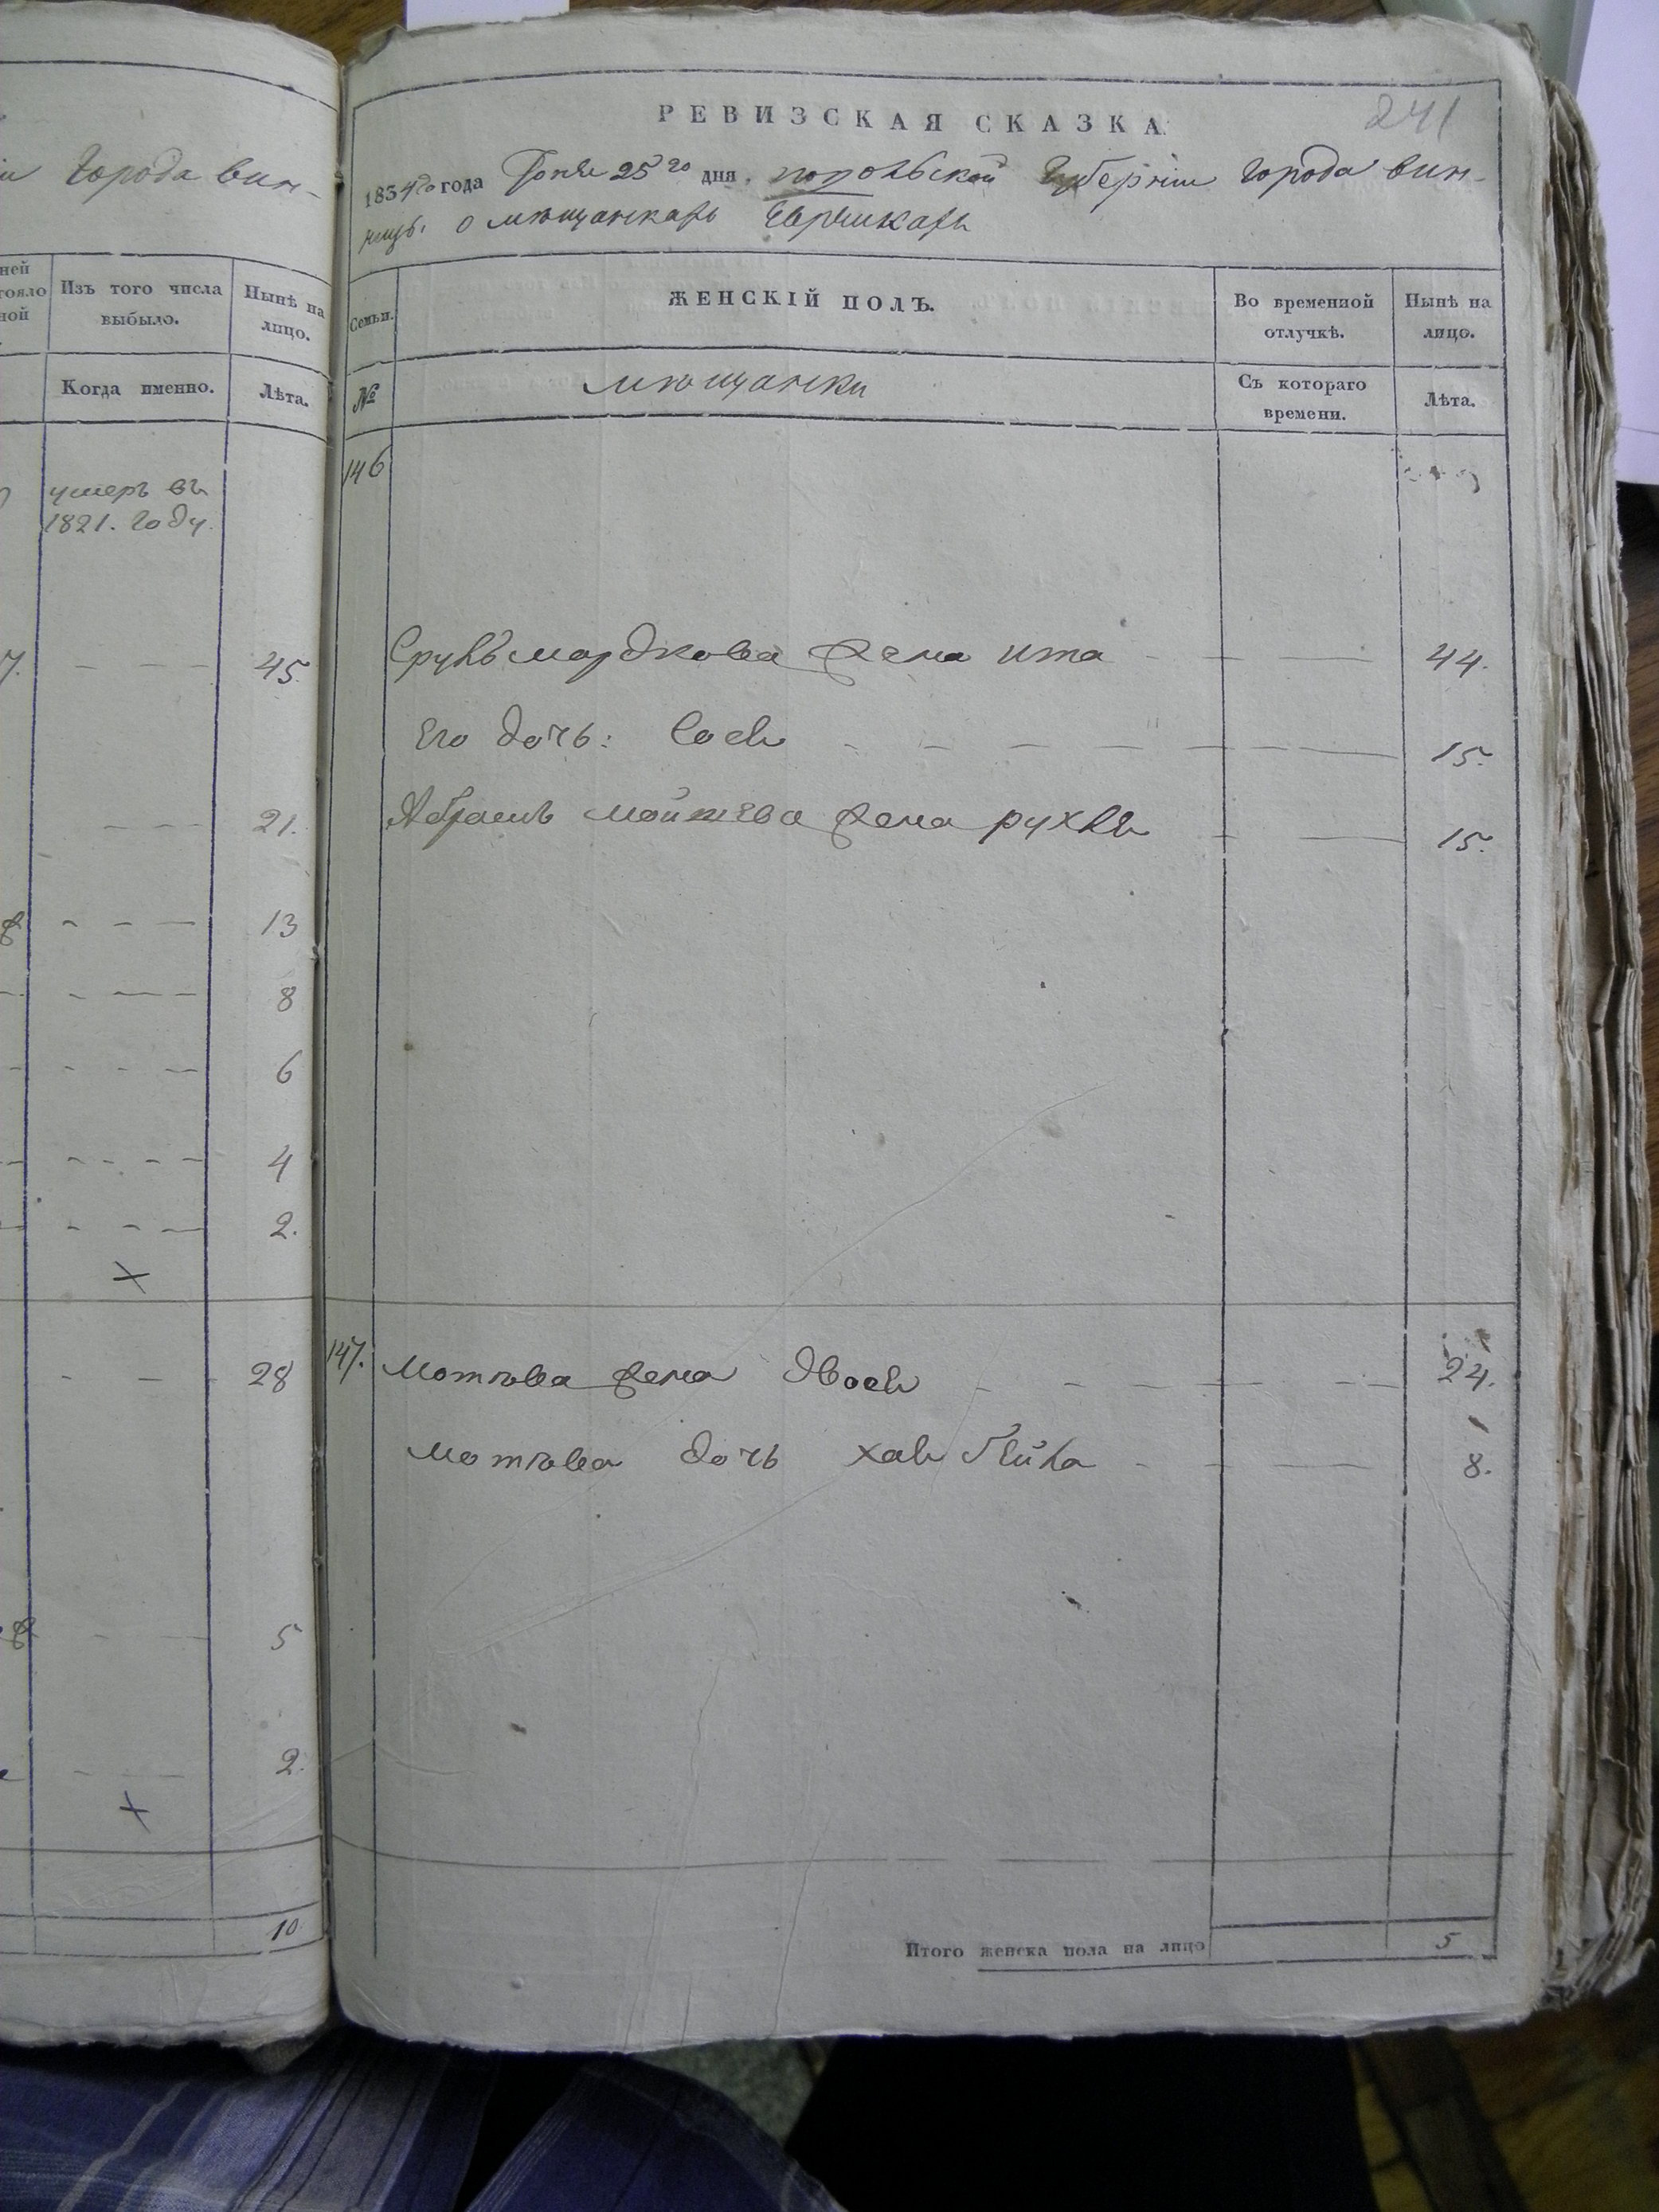 и Города Вин-
ней
Изъ того числа выбыло.
Нынѣ на лицо.
Когда именно.
Лѣта.
умеръ въ
1821. году.
45.
21.
13
8
6
4
2.
28
5
2.
10
241
РЕВИЗСКАЯ СКАЗКА
1834го года Іюня 25го дня. Подольской Губерніи Города Вин-
ницы. о мѣщанкахъ Еврейкахъ
Семьи.
ЖЕНСКІЙ ПОЛЪ.
Во временной отлучкѣ.
Нынѣ на лицо.
№
мѣщанки
Съ котораго времени.
Лѣта.
146
Сруль мордкова жена ита 44.
Его дочь: Сося 15.
Абрамъ мошкова жена рухля 15.
147. мотіова жена двося 24.
мотіова дочь хая бейла 8.
Итого женска пола на лицо 5